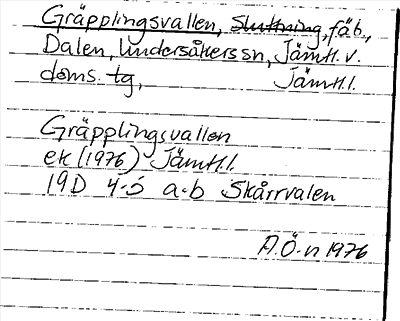 Gräpplingsvallen, Sluttning, fäb.,
Dalen, Undersåkers sn, Jämtl. v.
doms. tg, Jämtl.l.
Gräpplingsvallen
ek (1976) Jämtl.l.
19D 4-5 a-b Skårrvalen
A.Ö-n 1976